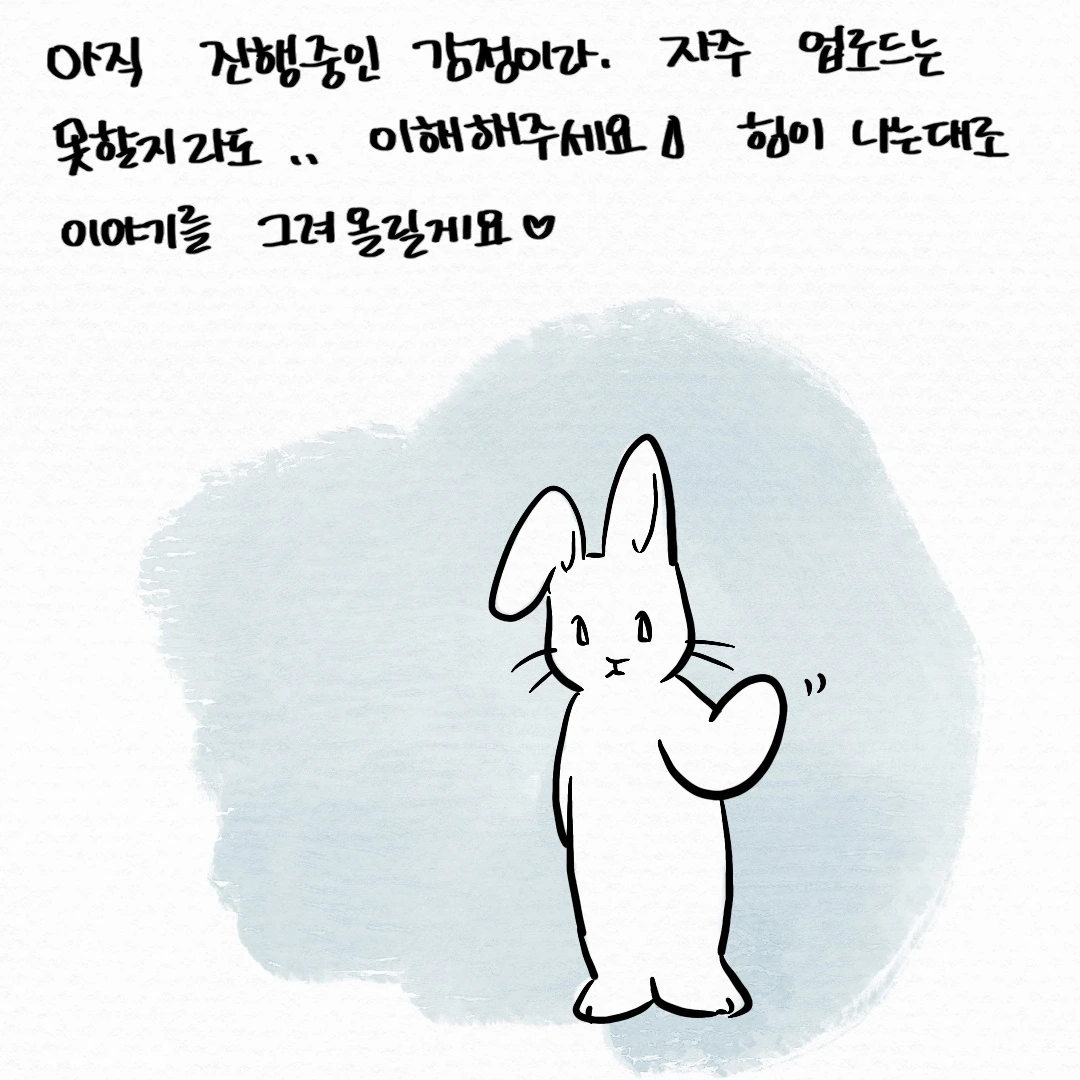 아직 진행중인 감정이라. 자주 업로드는
못할지라도 .. 이해해주세요 힘이 나는대로
이야기를 그려 올릴게요♥